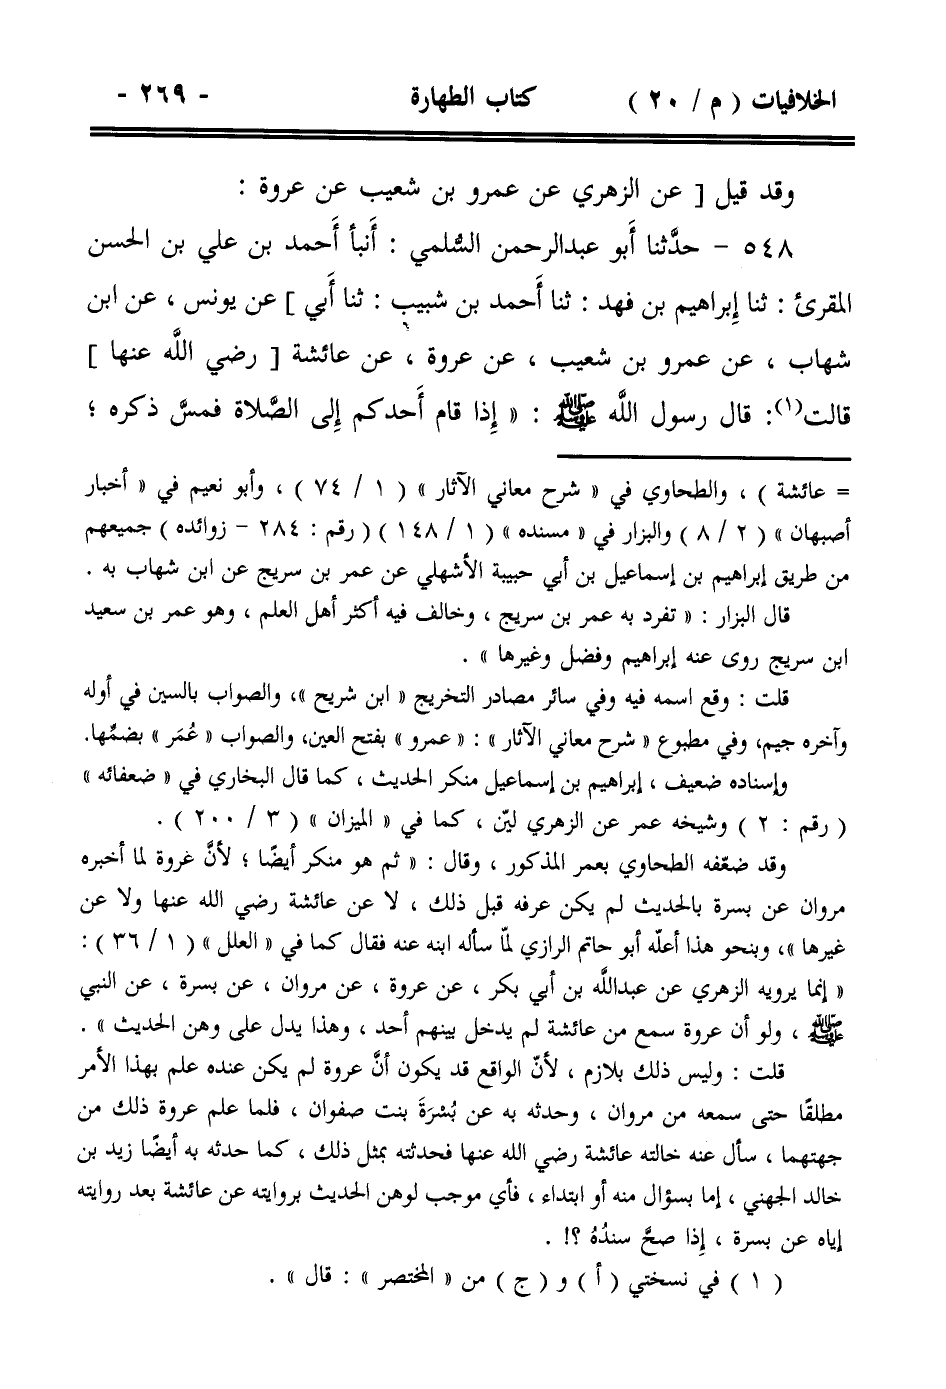 الخلافيات ( م / ٢٠ ) كتاب الطهارة - ٢٦٩ -
وقد قيل [ عن الزهري عن عمرو بن شعيب عن عروة :
٥٤٨ - حدَّثنا أَبو عبدالرحمن السُّلمي : أَنبأ أَحمد بن علي بن الحسن
المقرئ : ثنا إِبراهيم بن فهد : ثنا أَحمد بن شبيب : ثنا أَبي ] عن يونس ، عن ابن
شهاب ، عن عمرو بن شعيب ، عن عروة ، عن عائشة [ رضي اللَّه عنها ]
قالت(١): قال رسول اللَّه ﷺ : « إِذا قام أَحدكم إِلى الصَّلاة فمسَّ ذكره ؛
= عائشة ) ، والطحاوي في « شرح معاني الآثار » ( ١ / ٧٤ ) ، وأبو نعيم في « أخبار
أصبهان » ( ٢ / ٨ ) والبزار في « مسنده » ( ١ / ١٤٨ ) ( رقم : ٢٨٤ - زوائده ) جميعهم
من طريق إبراهيم بن إسماعيل بن أبي حبيبة الأشهلي عن عمر بن سريج عن ابن شهاب به .
قال البزار : « تفرد به عمر بن سريج ، وخالف فيه أكثر أهل العلم ، وهو عمر بن سعيد
ابن سريج روى عنه إبراهيم وفضل وغيرها » .
قلت : وقع اسمه فيه وفي سائر مصادر التخريج « ابن شريح »، والصواب بالسين في أوله
وآخره جيم، وفي مطبوع « شرح معاني الآثار » : « عمرو » بفتح العين، والصواب « عُمَر » بضمِّها.
وإسناده ضعيف ، إبراهيم بن إسماعيل منكر الحديث ، كما قال البخاري في « ضعفائه »
( رقم : ٢ ) وشيخه عمر عن الزهري ليّن ، كما في « الميزان » ( ٣ / ٢٠٠ ) .
وقد ضعّفه الطحاوي بعمر المذكور ، وقال : « ثم هو منكر أيضًا ؛ لأنَّ غروة لما أخبره
مروان عن بسرة بالحديث لم يكن عرفه قبل ذلك ، لا عن عائشة رضي الله عنها ولا عن
غيرها »، وبنحو هذا أعلّه أبو حاتم الرازي لمّا سأله ابنه عنه فقال كما في « العلل » ( ١ / ٣٦ ) :
« إنما يرويه الزهري عن عبداللَّه بن أبي بكر ، عن عروة ، عن مروان ، عن بسرة ، عن النبي
ﷺ ، ولو أن عروة سمع من عائشة لم يدخل بينهم أحد ، وهذا يدل على وهن الحديث » .
قلت : وليس ذلك بلازم ، لأنّ الواقع قد يكون أنَّ عروة لم يكن عنده علم بهذا الأمر
مطلقًا حتى سمعه من مروان ، وحدثه به عن بُسْرَةَ بنت صفوان ، فلما علم عروة ذلك من
جهتهما ، سأل عنه خالته عائشة رضي الله عنها فحدثته بمثل ذلك ، كما حدثه به أيضًا زيد بن
خالد الجهني ، إما بسؤال منه أو ابتداء ، فأي موجب لوهن الحديث بروايته عن عائشة بعد روايته
إياه عن بسرة ، إِذا صحَّ سندُهُ ؟! .
( ١ ) في نسختي ( أ ) و ( ج ) من « المختصر » : قال » .